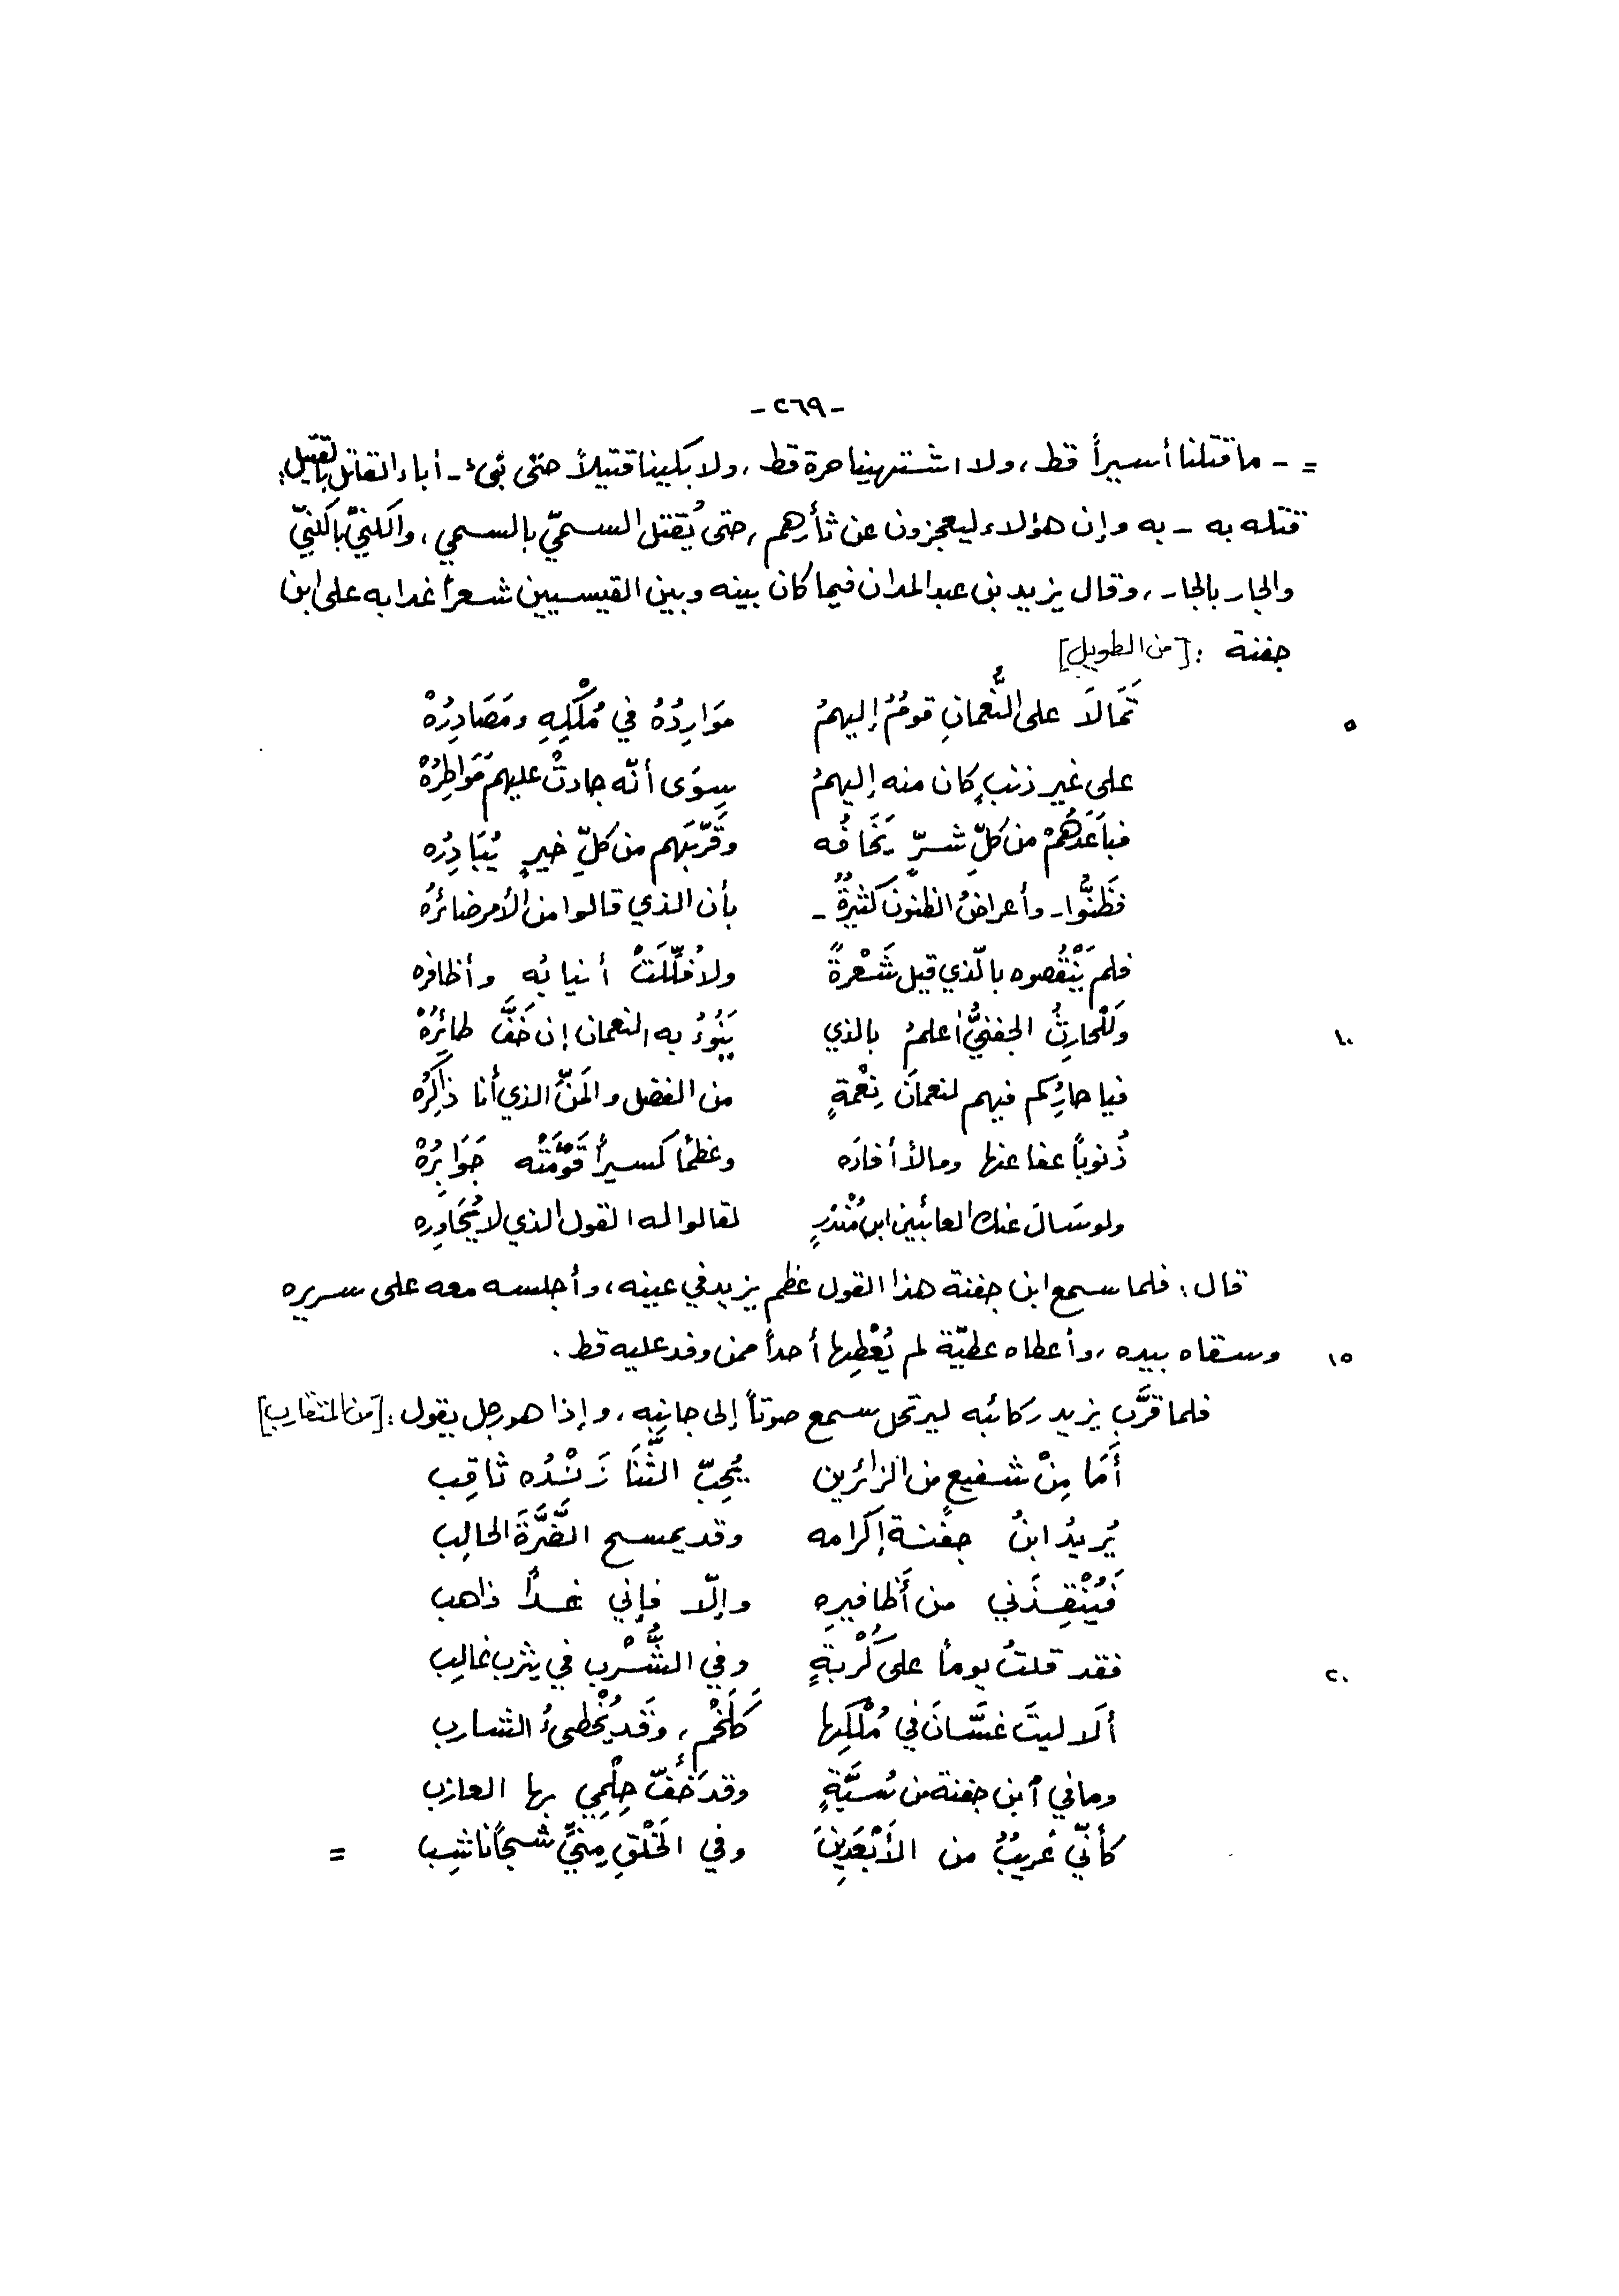 -٢٦٩-
= - ما قتلنا أسيراً قط، ولا اشتهينا حرة قط، ولا بكينا قتيلاً حتى نبىء - أباء القاتل بالقتيل:
قتله به - به وإن هؤلاء ليعجزون عن ثأرهم، حتى يُقتل السميّ بالسمي، والكنيّ بالكنيّ
والجار بالجار، وقال يزيد بن عبد المدان فيما كان بينه وبين القيسيين شعراً غدا به على ابن
جفنة : [من الطويل]
تَمَالَا على النُّعمانِ قومٌ إليهمُ مَوَارِدُهُ في مُلْكِهِ ومَصَادِرُهْ ٥
على غير ذنبٍ كان منه إليهمُ سِوَى أنّه جادتْ عليهم مَوَاطِرُهْ
فباعَدَهُمْ من كلِّ شرٍّ يَخَافُه وقَرّبَهم من كلِّ خيرٍ يُبَادِرُه
فظَنُّوا - وأعراضُ الظنون كثيرةٌ - بأن الذي قالوا من الأمر ضائرُه
فلم يَنْقُصوه بالّذي قيل شَعْرةً ولا فُلِّلَتْ أنيابُه وأظافره
وَلَلْحارِثُ الجفنيُّ أعلمُ بالذي يَنُوءُ به النعمان إن خَفَّ طائِرُهْ ١٠
فيا حارِ كم فيهم لنعمانَ نِعْمةٍ من الفضل والمَنِّ الذي أنا ذاكِرُه
ذُنوباً عفا عنها ومالاً أفادَه وعَظْماً كسيراً قَوَّمَتْه جَوَابِرُهْ
ولو سَالَ عنك العائبين ابن مُنْذرٍ لقالوا له القول الذي لا يُحَاوِره
قال : فلما سمع ابن جفنة هذا القول عظم يزيد في عينه، وأجلسه معه على سريره
وسقاه بيده، وأعطاه عطيّة لم يُعْطِها أحداً ممن وفد عليه قط. ١٥
فلما قرَّب يزيد ركائبه ليرتحل سمع صوتاً إلى جانبه، وإذا هو رجل يقول : [من المتقارب]
أَمَا مِنْ شفيعٍ من الزائرين يُحِبّ الثَّنَا زَنْدُه ثاقِب
يُريدُ ابنُ جفْنة إكرامه وقد يمسح الضَّرَّةَ الحالِب
فَيُنْقِذَني من أَظافيرِه وإلّا فإني غداً ذاهب
فقد قلتُ يوماً على كُرْبةٍ وفي الشَّرْبِ في يثرب غالِب ٢٠
ألا ليتَ غسَّانَ في مُلْكِها كَلَخْمٍ، وقد يُخْطىءُ الشارب
وما في ابن جفنة من سُبَّةٍ وقد خَفّ حِلْمِي بها العازب
كأنّي غريبٌ من الأَبْعَدِينَ وفي الحَلْقِ مِنِّي شَجاً ناشِب =